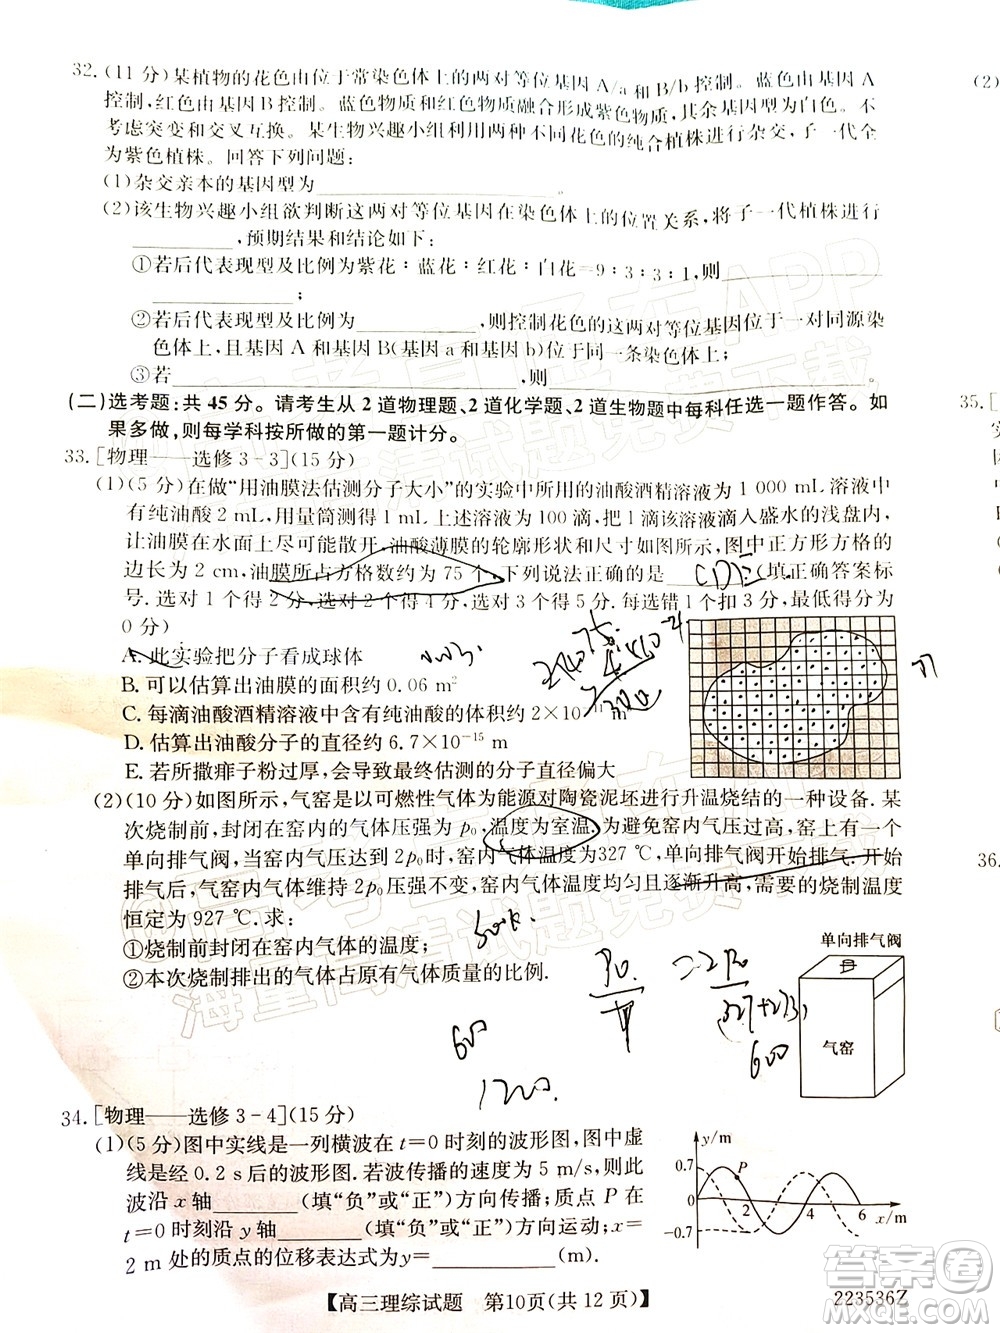 32.(11 分)某植物的花色由位于常染色体上的两对等位基因 A/a 和 B/b 控制。蓝色由基因 A
控制,红色由基因 B 控制。蓝色物质和红色物质融合形成紫色物质,其余基因型为白色。不
考虑突变和交叉互换。某生物兴趣小组利用两种不同花色的纯合植株进行杂交,子一代全
为紫色植株。回答下列问题:
(1)杂交亲本的基因型为
(2)该生物兴趣小组欲判断这两对等位基因在染色体上的位置关系,将子一代植株
,预期结果和结论如下:
①若后代表现型及比例为紫花∶蓝花∶红花∶白花=9∶3∶3∶1,则
;
②若后代表现型及比例为 ,则控制花色的这两对等位基因位于一对同源染
色体上,且基因 A 和基因 B(基因 a 和基因 b)位于同一条染色体上;
③若 ,则 。
(二)选考题:共 45 分。请考生从 2 道物理题、2 道化学题、2 道生物题中每科任选一题作答。如
果多做,则每学科按所做的第一题计分。
33.[物理——选修 3-3](15 分)
(1)(5 分)在做“用油膜法估测分子大小”的实验中所用的油酸酒精溶液为 1 000 mL 溶液中
有纯油酸 2 mL,用量筒测得 1 mL 上述溶液为 100 滴,把 1 滴该溶液滴入盛水的浅盘内,
让油膜在水面上尽可能散开,油酸薄膜的轮廓形状和尺寸如图所示,图中正方形方格的
边长为 2 cm,油膜所占方格数约为 75 个,下列说法正确的是 CDE (填正确答案标
号.选对 1 个得 2 分,选对 2 个得 4 分,选对 3 个得 5 分.每选错 1 个扣 3 分,最低得分为
0 分)
A.此实验把分子看成球体
B.可以估算出油膜的面积约 0.06 m²
C.每滴油酸酒精溶液中含有纯油酸的体积约 2×10
D.估算出油酸分子的直径约 6.7×10⁻¹⁵ m
E.若所撒痱子粉过厚,会导致最终估测的分子直径偏大
(2)(10 分)如图所示,气窑是以可燃性气体为能源对陶瓷泥坯进行升温烧结的一种设备.某
次烧制前,封闭在窑内的气体压强为 p₀,温度为室温,为避免窑内气压过高,窑上装有一个
单向排气阀,当窑内气压达到 2p₀ 时,窑内气体温度为 327 ℃,单向排气阀开始排气.开始
排气后,气窑内气体维持 2p₀ 压强不变,窑内气体温度均匀且逐渐升高,需要的烧制温度
恒定为 927 ℃.求:
①烧制前封闭在窑内气体的温度;
②本次烧制排出的气体占原有气体质量的比例.
300k.
P₀
T
=
2P₀
327+273
600
600
1200
单向排气阀
气窑
34.[物理——选修 3-4](15 分)
(1)(5 分)图中实线是一列横波在 t=0 时刻的波形图,图中虚
线是经 0.2 s 后的波形图.若波传播的速度为 5 m/s,则此
波沿 x 轴 (填“负”或“正”)方向传播;质点 P 在
t=0 时刻沿 y 轴 (填“负”或“正”)方向运动;x=
2 m 处的质点的位移表达式为 y= .
y/m
0.7
P
0
2
4
6
x/m
-0.7
【高三理综试题 第10页(共 12 页)】
223536Z
答案圈
MXQE.COM
(2)
35.[
36.